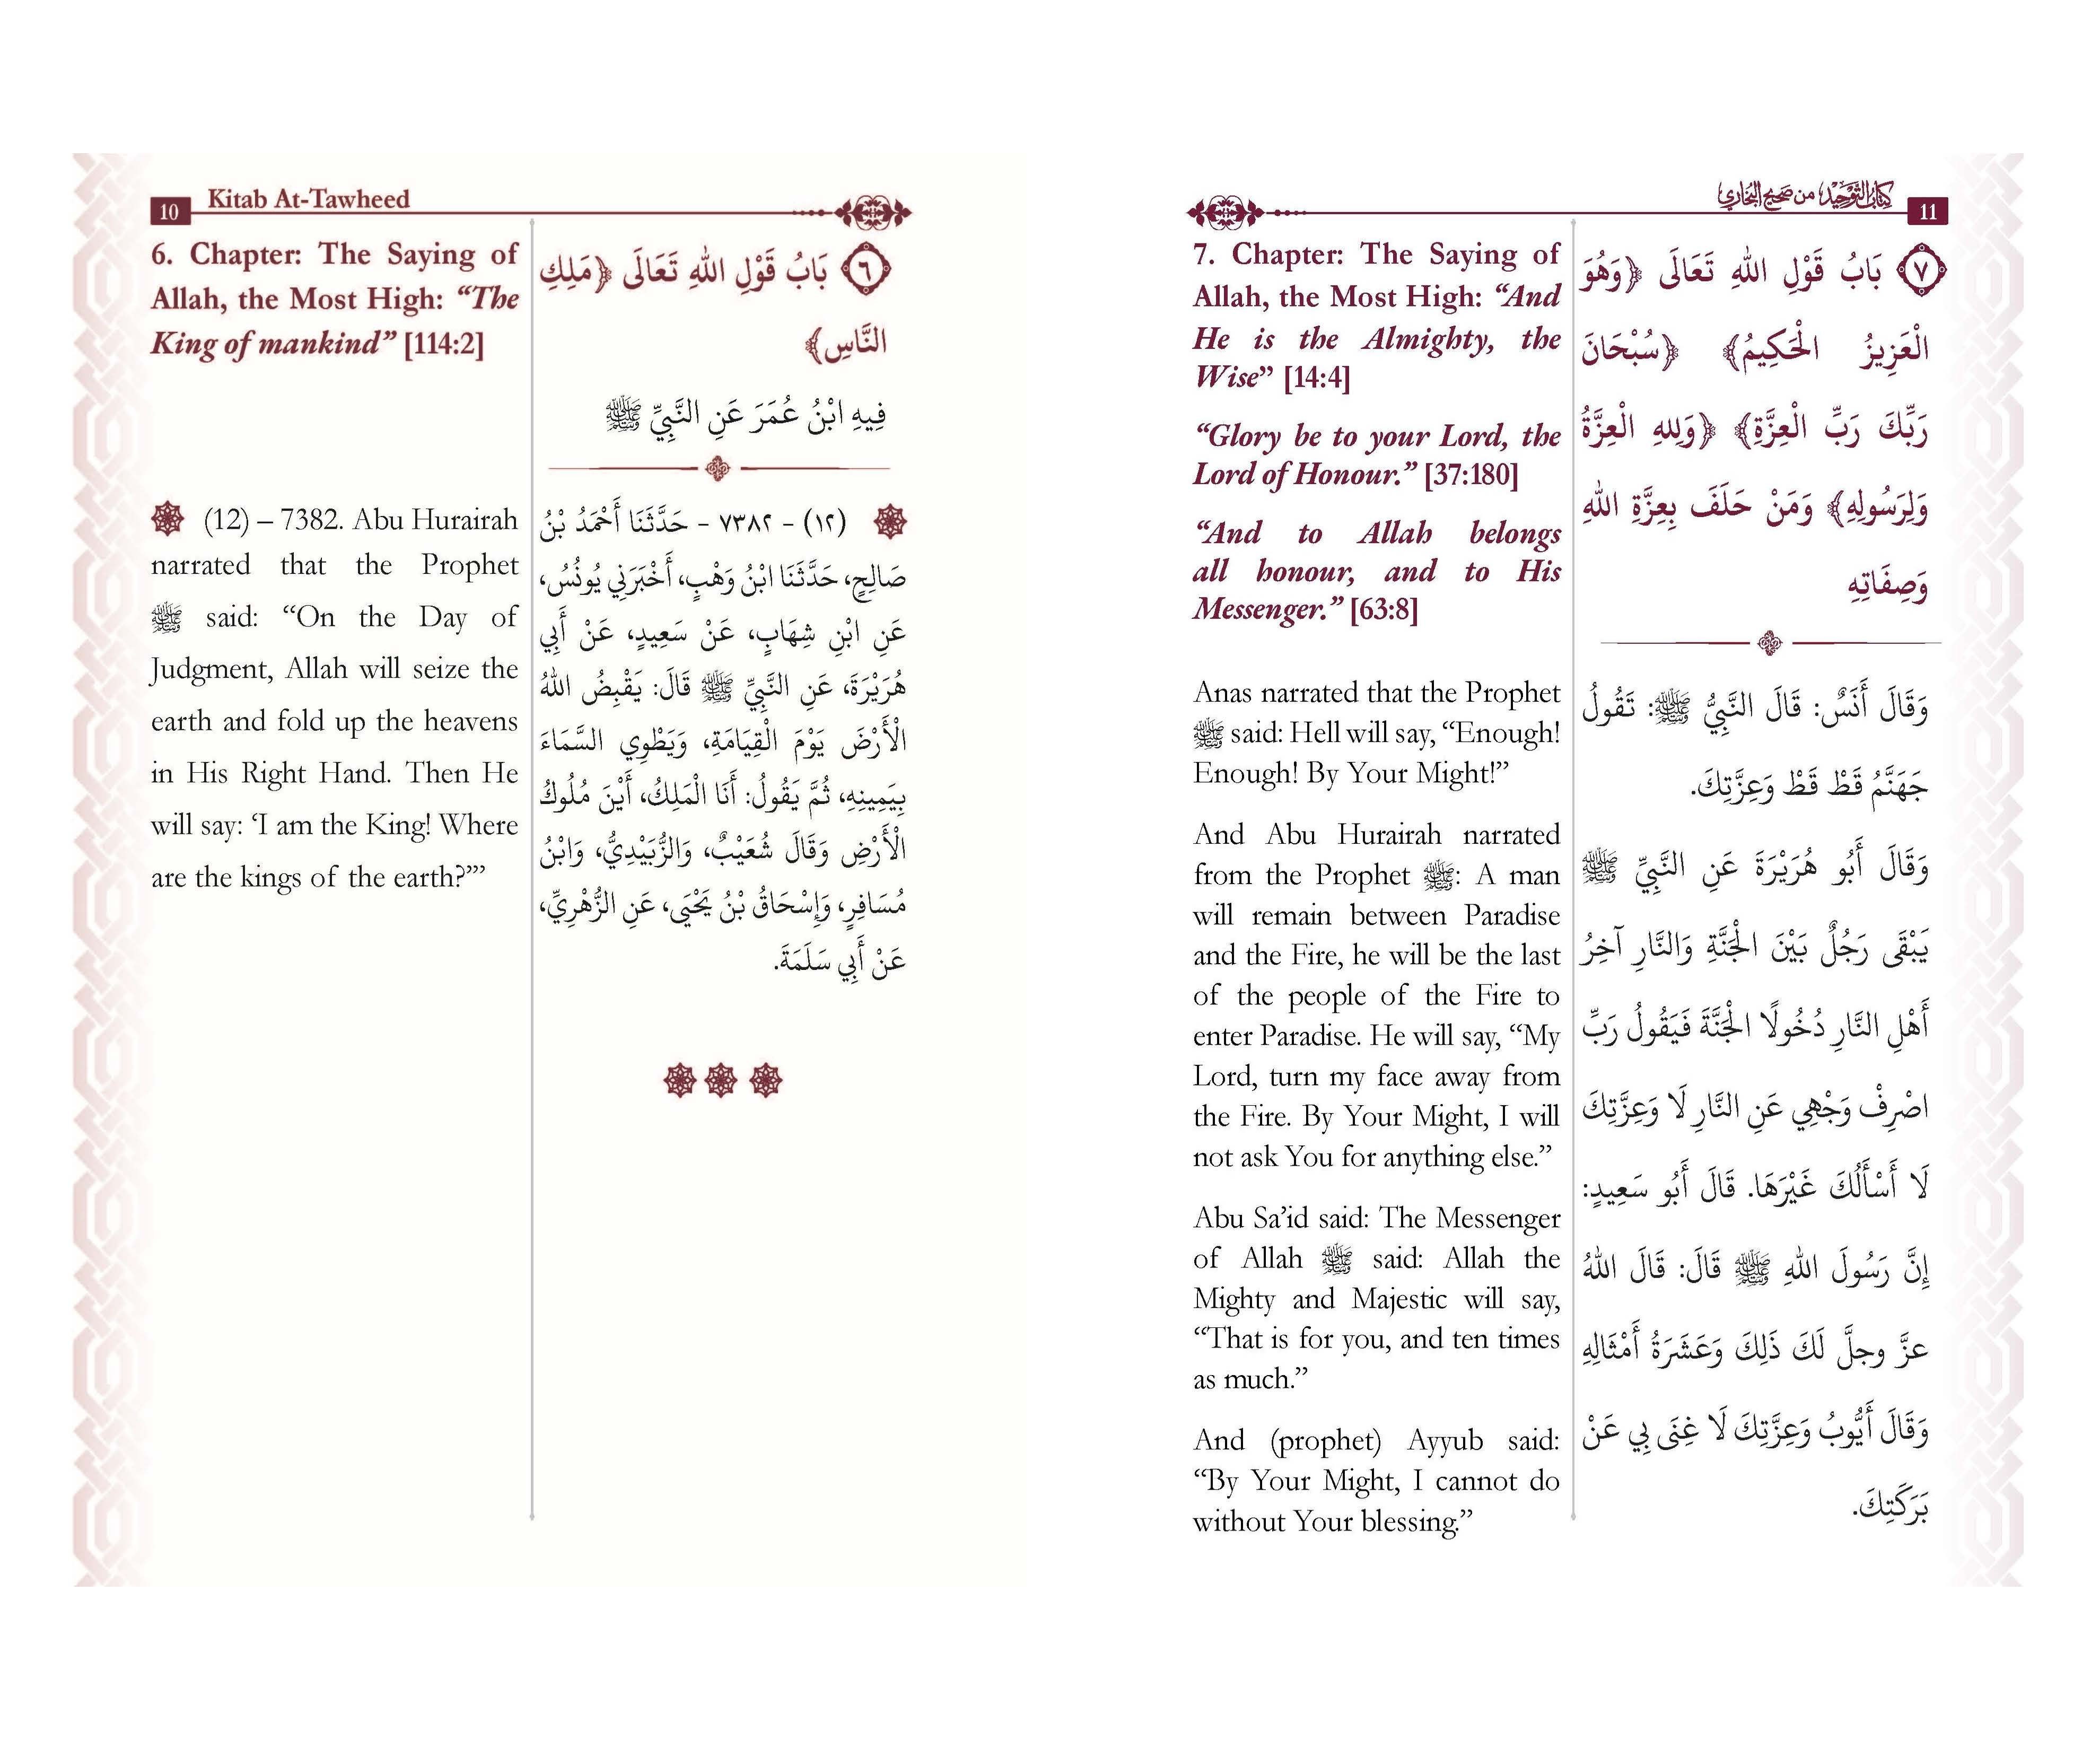 10 Kitab At-Tawheed
6. Chapter: The Saying of
Allah, the Most High: “The
King of mankind” [114:2]
(12) – 7382. Abu Hurairah
narrated that the Prophet
ﷺ said: “On the Day of
Judgment, Allah will seize the
earth and fold up the heavens
in His Right Hand. Then He
will say: ‘I am the King! Where
are the kings of the earth?’”
٦ بَابُ قَوْلِ اللهِ تَعَالَى ﴿مَلِكِ
النَّاسِ﴾
فِيهِ ابْنُ عُمَرَ عَنِ النَّبِيِّ ﷺ
(١٢) - ٧٣٨٢ - حَدَّثَنَا أَحْمَدُ بْنُ
صَالِحٍ، حَدَّثَنَا ابْنُ وَهْبٍ، أَخْبَرَنِي يُونُسُ،
عَنِ ابْنِ شِهَابٍ، عَنْ سَعِيدٍ، عَنْ أَبِي
هُرَيْرَةَ، عَنِ النَّبِيِّ ﷺ قَالَ: يَقْبِضُ اللهُ
الْأَرْضَ يَوْمَ الْقِيَامَةِ، وَيَطْوِي السَّمَاءَ
بِيَمِينِهِ، ثُمَّ يَقُولُ: أَنَا الْمَلِكُ، أَيْنَ مُلُوكُ
الْأَرْضِ وَقَالَ شُعَيْبٌ، وَالزُّبَيْدِيُّ، وَابْنُ
مُسَافِرٍ، وَإِسْحَاقُ بْنُ يَحْيَى، عَنِ الزُّهْرِيِّ،
عَنْ أَبِي سَلَمَةَ.
كتاب التوحيد من صحيح البخاري 11
7. Chapter: The Saying of
Allah, the Most High: “And
He is the Almighty, the
Wise” [14:4]
“Glory be to your Lord, the
Lord of Honour.” [37:180]
“And to Allah belongs
all honour, and to His
Messenger.” [63:8]
Anas narrated that the Prophet
ﷺ said: Hell will say, “Enough!
Enough! By Your Might!”
And Abu Hurairah narrated
from the Prophet ﷺ: A man
will remain between Paradise
and the Fire, he will be the last
of the people of the Fire to
enter Paradise. He will say, “My
Lord, turn my face away from
the Fire. By Your Might, I will
not ask You for anything else.”
Abu Sa’id said: The Messenger
of Allah ﷺ said: Allah the
Mighty and Majestic will say,
“That is for you, and ten times
as much.”
And (prophet) Ayyub said:
“By Your Might, I cannot do
without Your blessing.”
٧ بَابُ قَوْلِ اللهِ تَعَالَى ﴿وَهُوَ
الْعَزِيزُ الْحَكِيمُ﴾ ﴿سُبْحَانَ
رَبِّكَ رَبِّ الْعِزَّةِ﴾ ﴿وَلِلهِ الْعِزَّةُ
وَلِرَسُولِهِ﴾ وَمَنْ حَلَفَ بِعِزَّةِ اللهِ
وَصِفَاتِهِ
وَقَالَ أَنَسٌ: قَالَ النَّبِيُّ ﷺ: تَقُولُ
جَهَنَّمُ قَطْ قَطْ وَعِزَّتِكَ.
وَقَالَ أَبُو هُرَيْرَةَ عَنِ النَّبِيِّ ﷺ
يَبْقَى رَجُلٌ بَيْنَ الْجَنَّةِ وَالنَّارِ آخِرُ
أَهْلِ النَّارِ دُخُولًا الْجَنَّةَ فَيَقُولُ رَبِّ
اصْرِفْ وَجْهِي عَنِ النَّارِ لَا وَعِزَّتِكَ
لَا أَسْأَلُكَ غَيْرَهَا. قَالَ أَبُو سَعِيدٍ:
إِنَّ رَسُولَ اللهِ ﷺ قَالَ: قَالَ اللهُ
عزَّ وجلَّ لَكَ ذَلِكَ وَعَشَرَةُ أَمْثَالِهِ
وَقَالَ أَيُّوبُ وَعِزَّتِكَ لَا غِنَى بِي عَنْ
بَرَكَتِكَ.